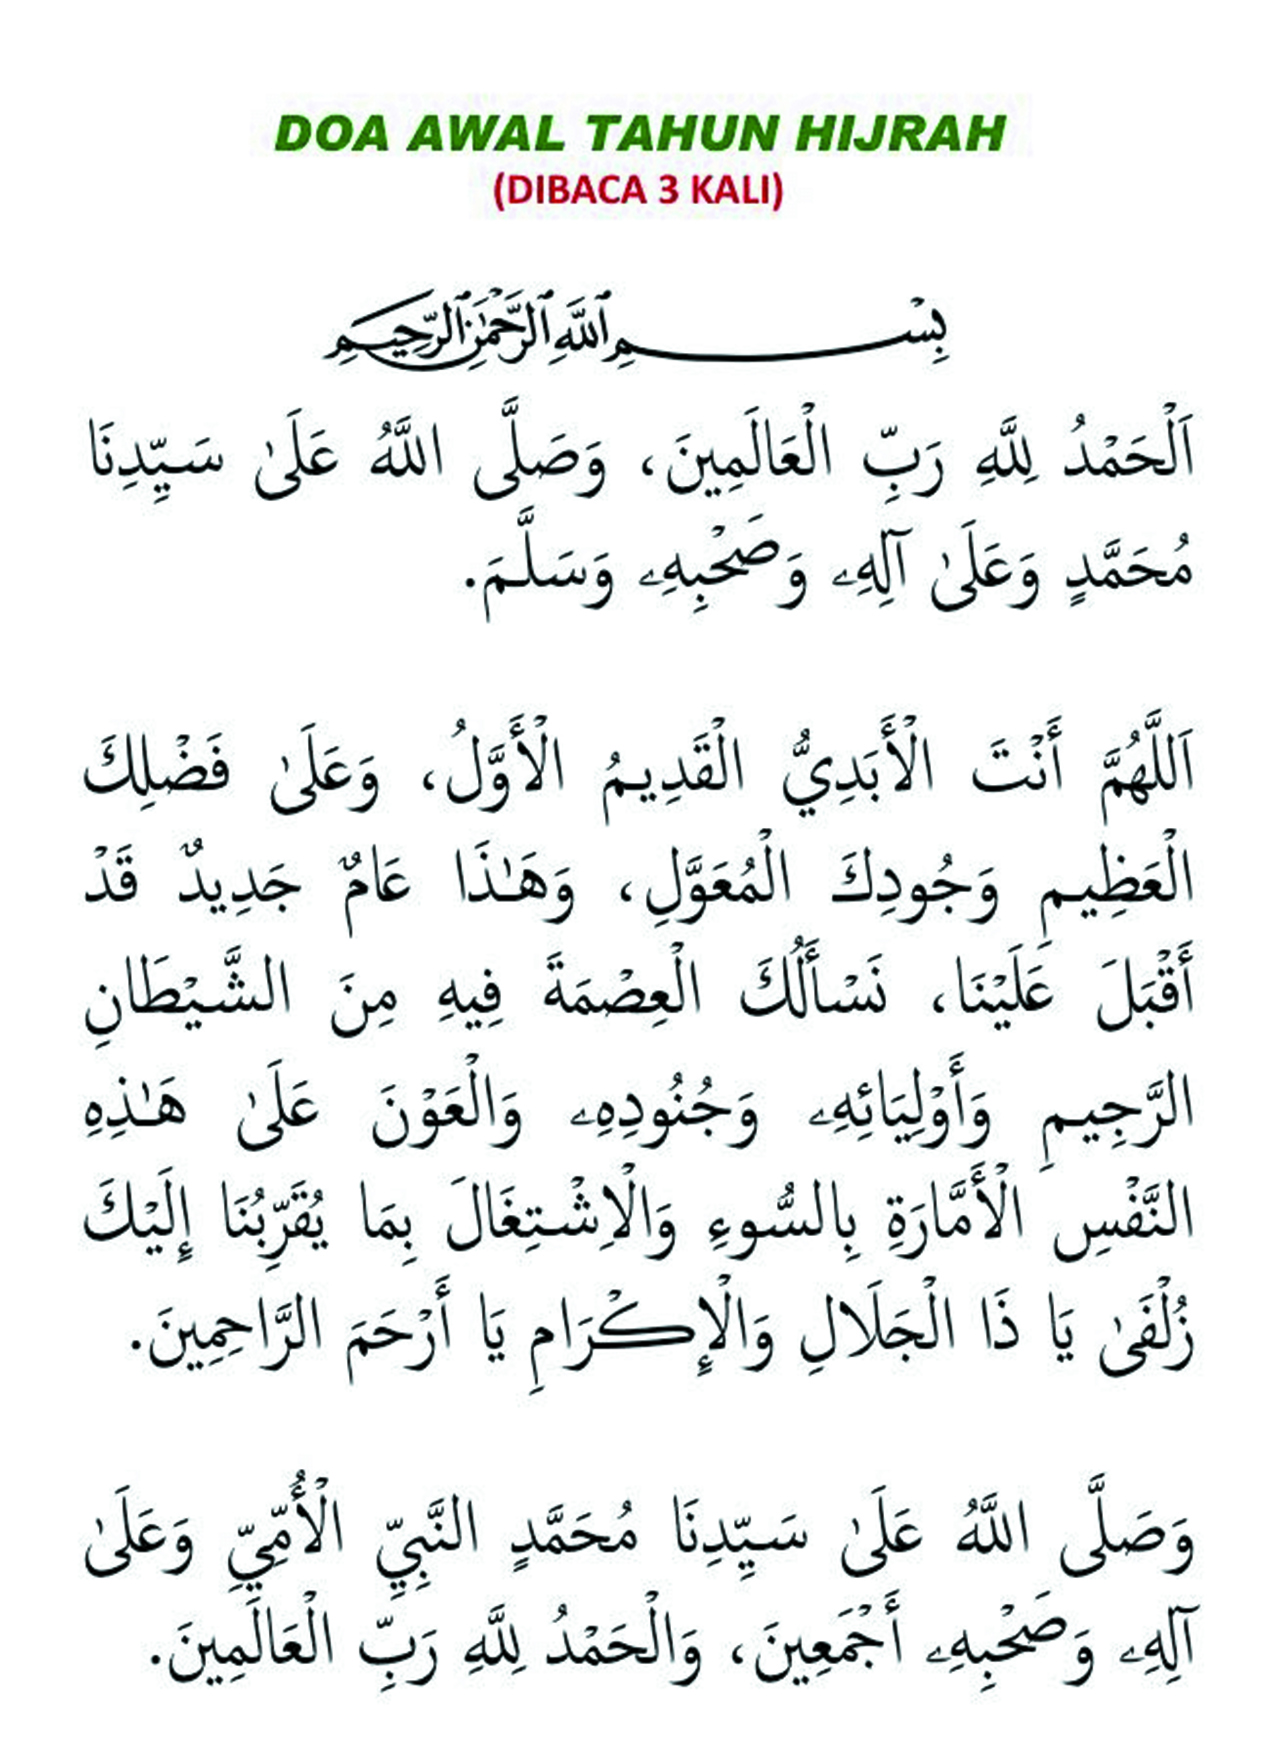 DOA AWAL TAHUN HIJRAH
(DIBACA 3 KALI)
بِسْمِ ٱللَّهِ ٱلرَّحْمَٰنِ ٱلرَّحِيمِ
اَلْحَمْدُ لِلَّهِ رَبِّ الْعَالَمِينَ، وَصَلَّى اللَّهُ عَلَىٰ سَيِّدِنَا
مُحَمَّدٍ وَعَلَىٰ آلِهِۦ وَصَحْبِهِۦ وَسَلَّمَ.
اَللَّهُمَّ أَنْتَ الْأَبَدِيُّ الْقَدِيمُ الْأَوَّلُ، وَعَلَىٰ فَضْلِكَ
الْعَظِيم وَجُودِكَ الْمُعَوَّلِ، وَهَٰذَا عَامٌ جَدِيدٌ قَدْ
أَقْبَلَ عَلَيْنَا، نَسْأَلُكَ الْعِصْمَةَ فِيهِ مِنَ الشَّيْطَانِ
الرَّجِيمِ وَأَوْلِيَائِهِۦ وَجُنُودِهِۦ وَالْعَوْنَ عَلَىٰ هَٰذِهِ
النَّفْسِ الْأَمَّارَةِ بِالسُّوءِ وَالْاِشْتِغَالَ بِمَا يُقَرِّبُنَا إِلَيْكَ
زُلْفَىٰ يَا ذَا الْجَلَالِ وَالْإِكْرَامِ يَا أَرْحَمَ الرَّاحِمِينَ.
وَصَلَّى اللَّهُ عَلَىٰ سَيِّدِنَا مُحَمَّدٍ النَّبِيِّ الْأُمِّيِّ وَعَلَىٰ
آلِهِۦ وَصَحْبِهِۦ أَجْمَعِينَ، وَالْحَمْدُ لِلَّهِ رَبِّ الْعَالَمِينَ.